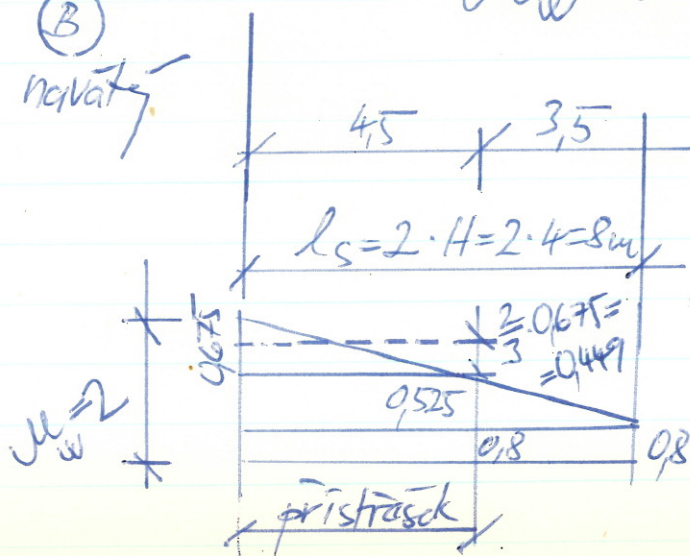 B
navátý
4,5 3,5
ls=2·H=2·4=8m
0,675
2/3·0,675=
=0,449
μw=2
0,525
0,8 0,8
přístrašek